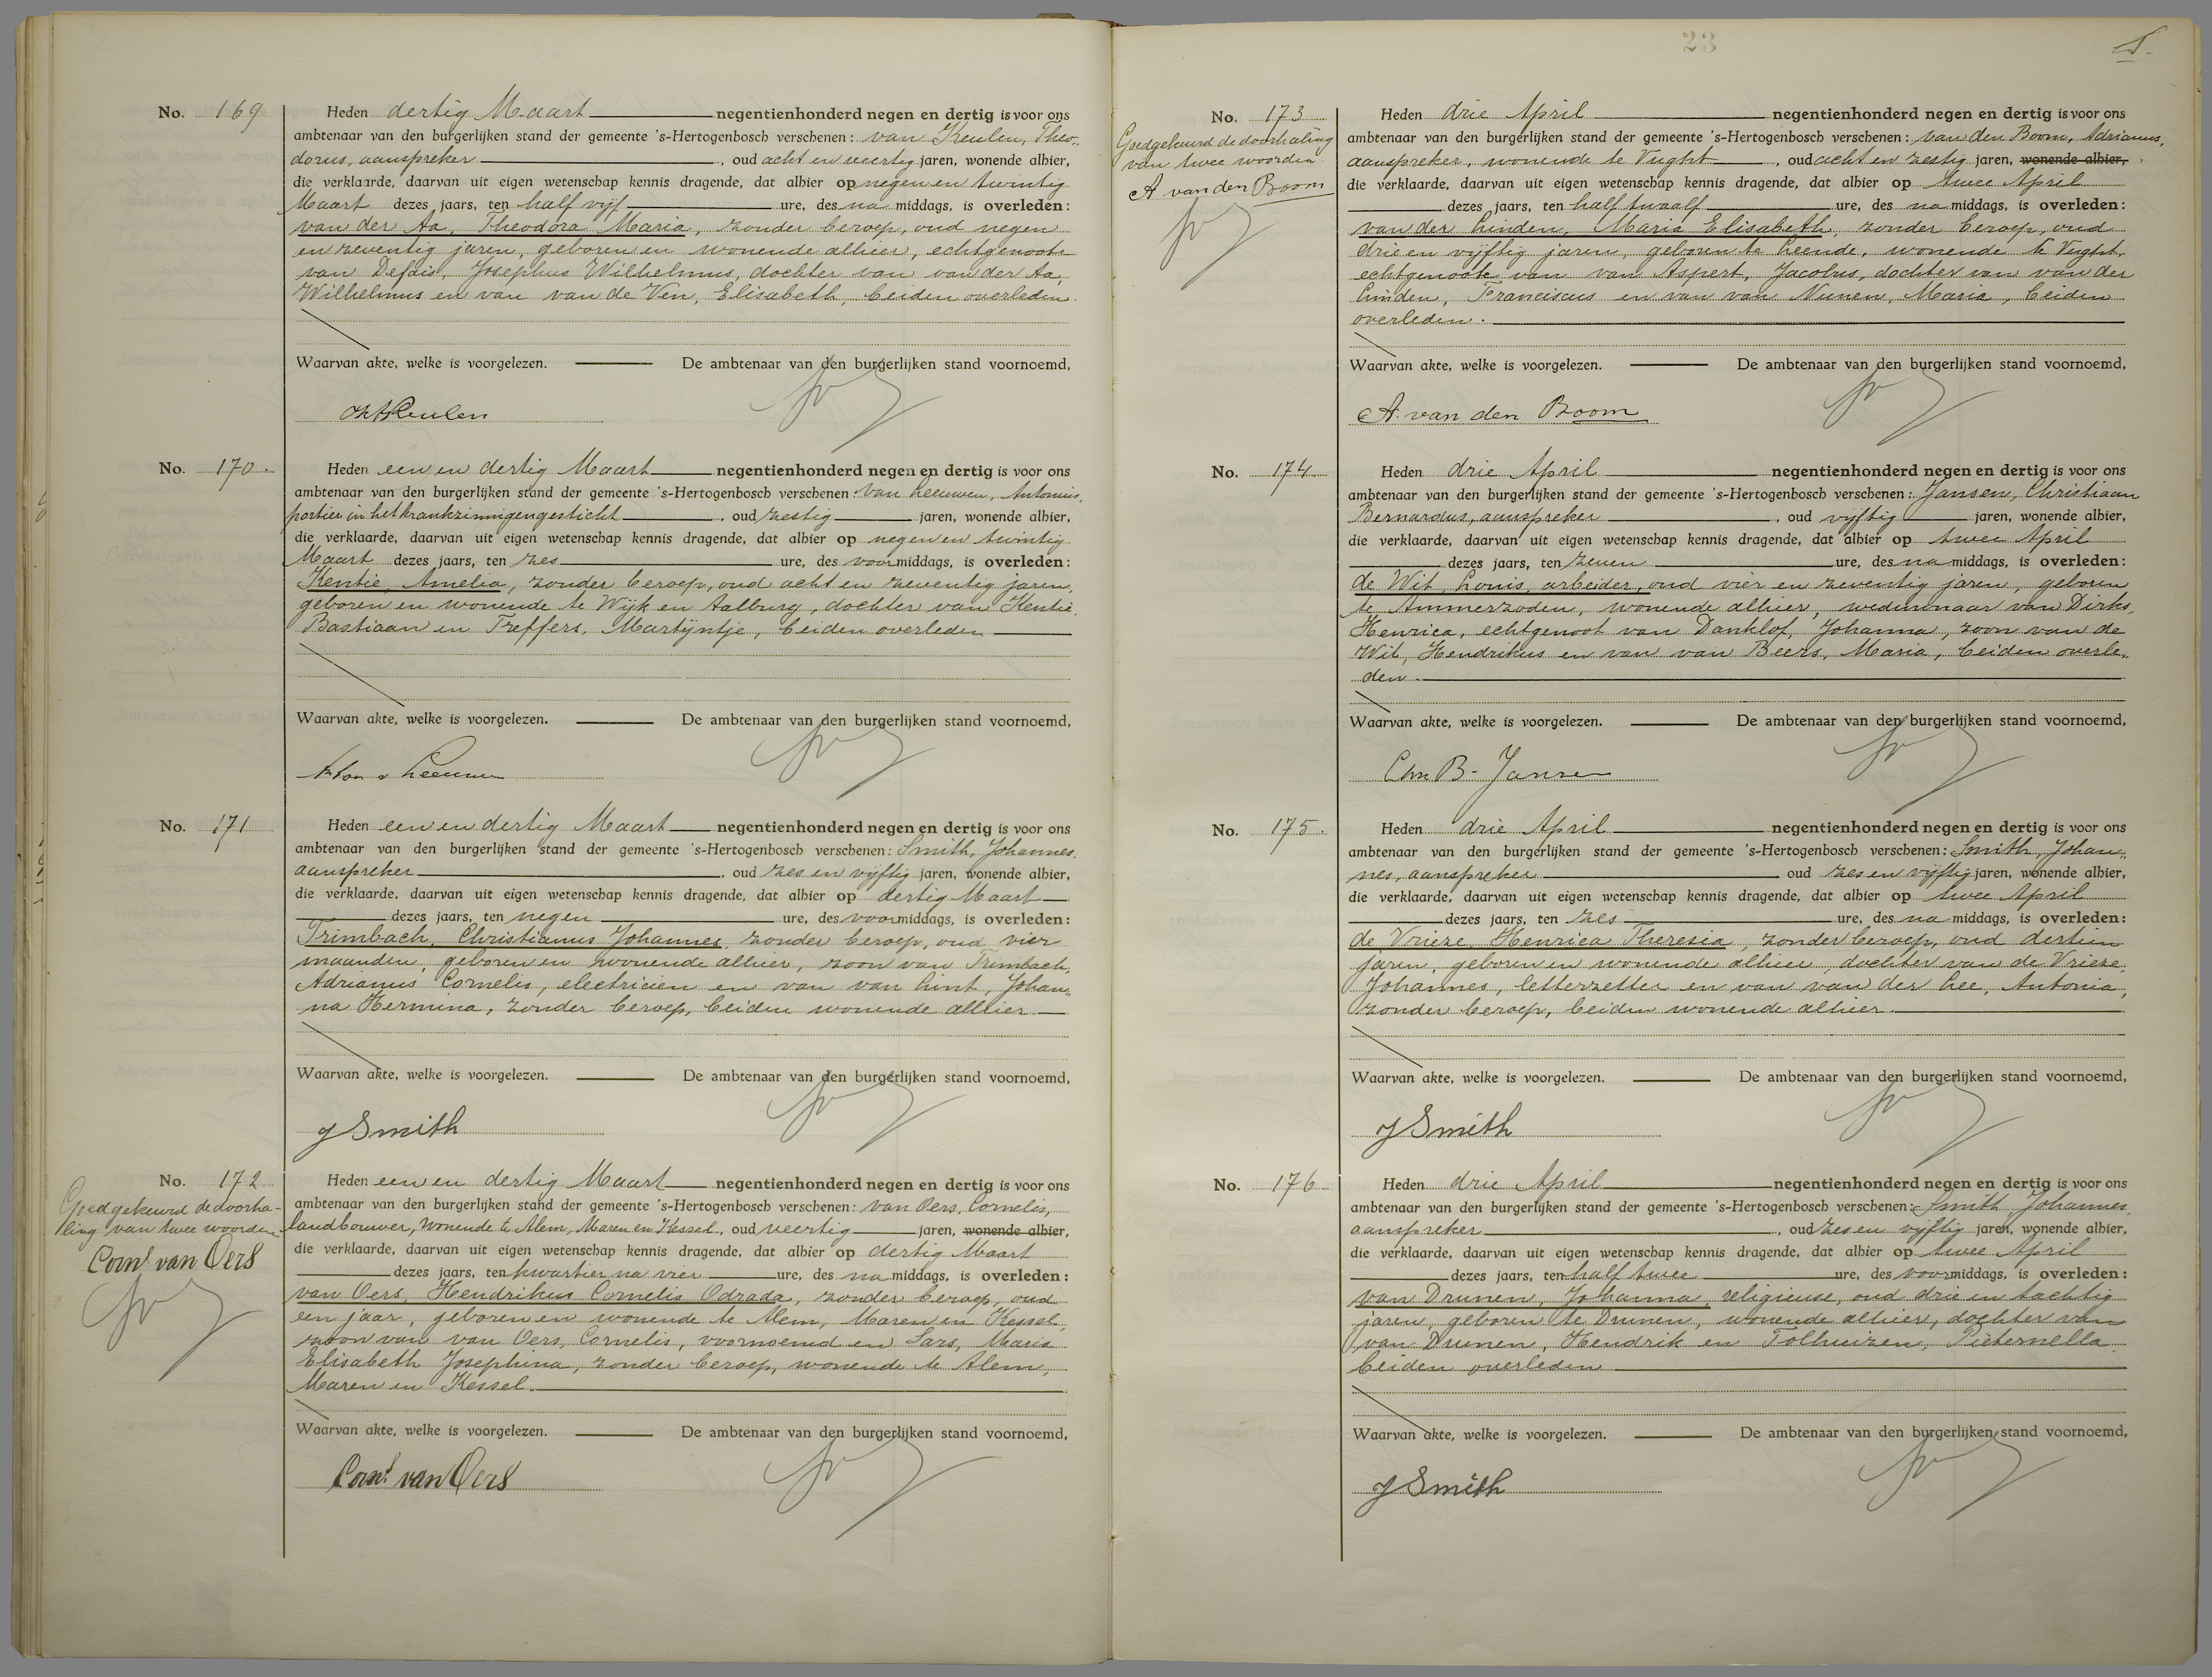 No. 169
Heden dertig Maart negentienhonderd negen en dertig is voor ons
ambtenaar van den burgerlijken stand der gemeente 's-Hertogenbosch verschenen: van Keulen, Theo-
dorus, aanspreker, oud acht en veertig jaren, wonende alhier,
die verklaarde, daarvan uit eigen wetenschap kennis dragende, dat alhier op negen en twintig
Maart dezes jaars, ten half vijf ure, des na middags, is overleden:
van der Aa, Theodora Maria, zonder beroep, oud negen
en zeventig jaren, geboren en wonende alhier, echtgenoote
van Defais, Josephus Wilhelmus, dochter van van der Aa,
Wilhelmus en van van de Ven, Elisabeth, beiden overleden.
Waarvan akte, welke is voorgelezen. De ambtenaar van den burgerlijken stand voornoemd,
Keulen
No. 170.
Heden een en dertig Maart negentienhonderd negen en dertig is voor ons
ambtenaar van den burgerlijken stand der gemeente 's-Hertogenbosch verschenen: van Leeuwen, Antonius,
portier in het krankzinnigengesticht, oud zestig jaren, wonende alhier,
die verklaarde, daarvan uit eigen wetenschap kennis dragende, dat alhier op negen en twintig
Maart dezes jaars, ten zes ure, des voormiddags, is overleden:
Kentie, Amelia, zonder beroep, oud acht en zeventig jaren,
geboren en wonende te Wijk en Aalburg, dochter van Kentie
Bastiaan en Treffers, Martijntje, beiden overleden
Waarvan akte, welke is voorgelezen. De ambtenaar van den burgerlijken stand voornoemd,
v Leeuwen
No. 171
Heden een en dertig Maart negentienhonderd negen en dertig is voor ons
ambtenaar van den burgerlijken stand der gemeente 's-Hertogenbosch verschenen: Smith, Johannes,
aanspreker, oud zes en vijftig jaren, wonende alhier,
die verklaarde, daarvan uit eigen wetenschap kennis dragende, dat alhier op dertig Maart
dezes jaars, ten negen ure, des voormiddags, is overleden:
Trimbach, Christianus Johannes, zonder beroep, oud vier
maanden, geboren en wonende alhier, zoon van Trimbach,
Adrianus Cornelis, electricien en van van Lint, Johan-
na Hermina, zonder beroep, beiden wonende alhier.
Waarvan akte, welke is voorgelezen. De ambtenaar van den burgerlijken stand voornoemd,
J Smith
No. 172
Goedgekeurd de doorha-
ling van twee woorden
Corn.s van Oers
Heden een en dertig Maart negentienhonderd negen en dertig is voor ons
ambtenaar van den burgerlijken stand der gemeente 's-Hertogenbosch verschenen: van Oers, Cornelis,
landbouwer, wonende te Alem, Maren en Kessel, oud veertig jaren, wonende alhier,
die verklaarde, daarvan uit eigen wetenschap kennis dragende, dat alhier op dertig Maart
dezes jaars, ten kwartier na vier ure, des na middags, is overleden:
van Oers, Hendrikus Cornelis Odrada, zonder beroep, oud
een jaar, geboren en wonende te Alem, Maren en Kessel,
zoon van van Oers, Cornelis, voornoemd en Sars, Maria
Elisabeth Josephina, zonder beroep, wonende te Alem,
Maren en Kessel.
Waarvan akte, welke is voorgelezen. De ambtenaar van den burgerlijken stand voornoemd,
Corn.s van Oers
23
No. 173
Goedgekeurd de doorhaling
van twee woorden
A van den Boom
Heden drie April negentienhonderd negen en dertig is voor ons
ambtenaar van den burgerlijken stand der gemeente 's-Hertogenbosch verschenen: van den Boom, Adrianus,
aanspreker, wonende te Vught, oud acht en zestig jaren, wonende alhier,
die verklaarde, daarvan uit eigen wetenschap kennis dragende, dat alhier op twee April
dezes jaars, ten half twaalf ure, des na middags, is overleden:
van der Linden, Maria Elisabeth, zonder beroep, oud
drie en vijftig jaren, geboren te Leende, wonende te Vught,
echtgenoote van van Aspert, Jacobus, dochter van van der
Linden, Franciscus en van van Nunen, Maria, beiden
overleden.
Waarvan akte, welke is voorgelezen. De ambtenaar van den burgerlijken stand voornoemd,
A. van den Boom
No. 174
Heden drie April negentienhonderd negen en dertig is voor ons
ambtenaar van den burgerlijken stand der gemeente 's-Hertogenbosch verschenen: Jansen, Christiaan
Bernardus, aanspreker, oud vijftig jaren, wonende alhier,
die verklaarde, daarvan uit eigen wetenschap kennis dragende, dat alhier op twee April
dezes jaars, ten zeven ure, des na middags, is overleden:
de Wit, Louis, arbeider, oud vier en zeventig jaren, geboren
te Ammerzoden, wonende alhier, weduwnaar van Dirks,
Henrica, echtgenoot van Danklof, Johanna, zoon van de
Wit, Hendrikus en van van Beers, Maria, beiden overle-
den.
Waarvan akte, welke is voorgelezen. De ambtenaar van den burgerlijken stand voornoemd,
Chr. B. Jansen
No. 175.
Heden drie April negentienhonderd negen en dertig is voor ons
ambtenaar van den burgerlijken stand der gemeente 's-Hertogenbosch verschenen: Smith, Johan-
nes, aanspreker oud zes en vijftig jaren, wonende alhier,
die verklaarde, daarvan uit eigen wetenschap kennis dragende, dat alhier op twee April
dezes jaars, ten zes ure, des na middags, is overleden:
de Vrieze, Henrica Theresia, zonder beroep, oud dertien
jaren, geboren en wonende alhier, dochter van de Vrieze,
Johannes, letterzetter en van van der Lee, Antonia,
zonder beroep, beiden wonende alhier.
Waarvan akte, welke is voorgelezen. De ambtenaar van den burgerlijken stand voornoemd,
J Smith
No. 176
Heden drie April negentienhonderd negen en dertig is voor ons
ambtenaar van den burgerlijken stand der gemeente 's-Hertogenbosch verschenen: Smith, Johannes,
aanspreker, oud zes en vijftig jaren, wonende alhier,
die verklaarde, daarvan uit eigen wetenschap kennis dragende, dat alhier op twee April
dezes jaars, ten half twee ure, des voormiddags, is overleden:
van Drunen, Johanna, religieuse, oud drie en tachtig
jaren, geboren te Drunen, wonende alhier, dochter van
van Drunen, Hendrik en Tolhuizen, Pieternella
beiden overleden
Waarvan akte, welke is voorgelezen. De ambtenaar van den burgerlijken stand voornoemd,
J Smith